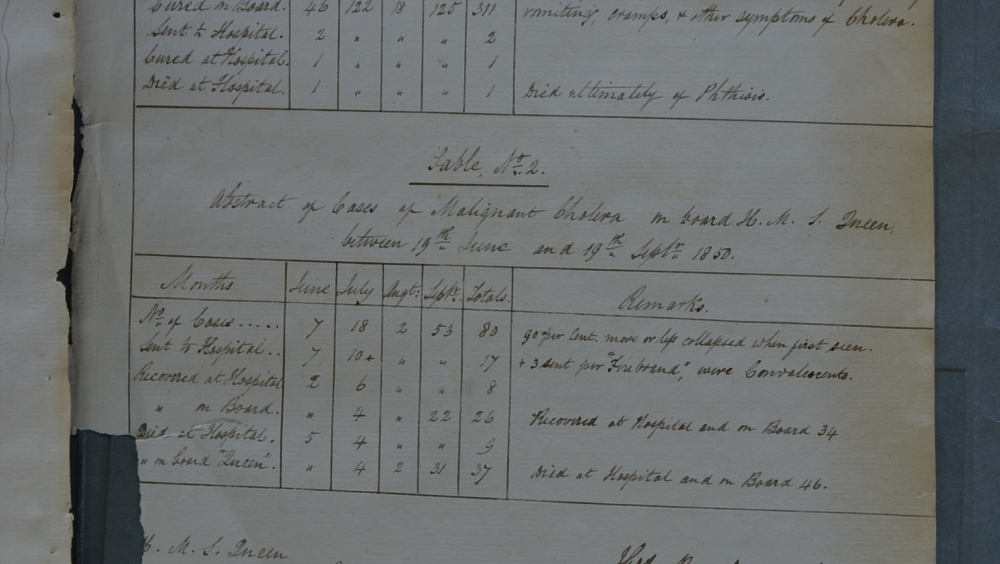 Cured on Board. 46 122 18 125 311 vomiting, cramps, & other symptoms of Cholera.
Sent to Hospital. 2 " " " 2
Cured at Hospital. 1 " " " 1
Died at Hospital. 1 " " " 1 Died ultimately of Phthisis.
Table, No. 2.
Abstract of Cases of Malignant Cholera on board H. M. S. Queen,
between 19th June and 19th Septr. 1850.
Months June July Augt: Sept. Totals. Remarks.
No. of Cases..... 7 18 2 53 80 90 per Cent. more or less collapsed when first seen.
Sent to Hospital.. 7 10+ " " 17 + 3 sent per "Firebrand", were Convalescents.
Recovered at Hospital 2 6 " " 8
" on Board. " 4 " 22 26 Recovered at Hospital and on Board 34
Died at Hospital. 5 4 " " 9
" on board "Queen". " 4 2 31 37 Died at Hospital and on Board 46.
H. M. S. Queen